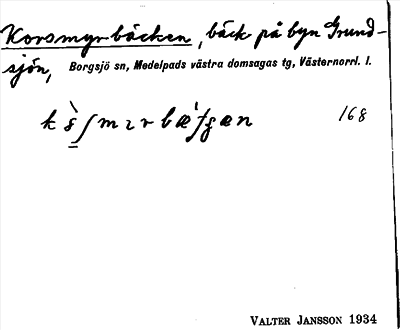 Korsmyrbäcken, bäck på byn Grund-
sjön, Borgsjö sn, Medelpads västra domsagas tg, Västernorrl. l.
168
VALTER JANSSON 1934